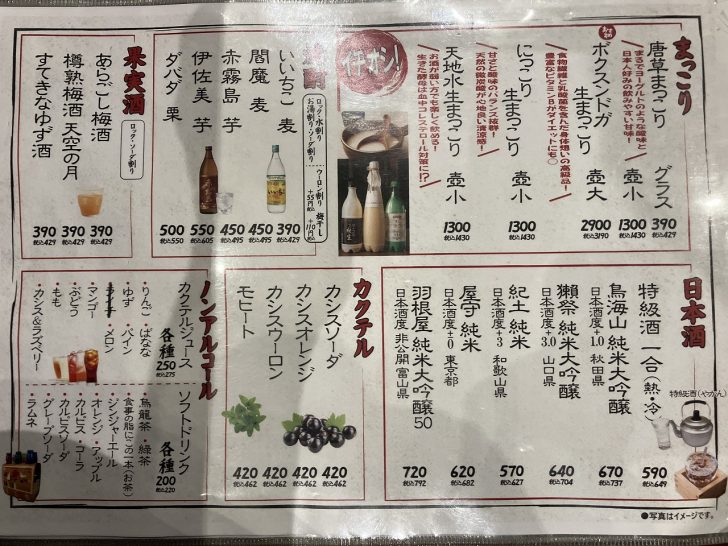 まっこり
唐草まっこり グラス 390 税込429
壺小 1300 税込1430
まるでヨーグルトのような酸味と
日本人好みの飲みやすい甘味!
おすすめ
ボクスンドガ 生まっこり 壺大 2900 税込3190
食物繊維と乳酸菌を含んだ身体想いの高級品!
豊富なビタミンBがダイエットにも◎
にっこり 生まっこり 壺小 1300 税込1430
甘さと酸味のバランス抜群!
天然の微炭酸が心地良い清涼感!
天地水生まっこり 壺小 1300 税込1430
お酒が弱い方でも楽しく飲める!
生きた酵母は血中コレステロール対策に!?
イチオシ!
ロック・水割り
お湯割り・ソーダ割り
ウーロン割り +55円税込
梅干し +110円税込
いいちこ 麦 390 税込429
閻魔 麦 450 税込495
赤霧島 芋 450 税込495
伊佐美 芋 550 税込605
ダバダ 栗 500 税込550
果実酒
ロック・ソーダ割り
あらごし梅酒 390 税込429
樽熟梅酒 天空の月 390 税込429
すてきなゆず酒 390 税込429
日本酒
特級酒 一合(熱・冷) 590 税込649
鳥海山 純米大吟醸 670 税込737
日本酒度+1.0 秋田県
獺祭 純米大吟醸 640 税込704
日本酒度+3.0 山口県
紀土 純米 570 税込627
日本酒度+3 和歌山県
屋守 純米 620 税込682
日本酒度±0 東京都
羽根屋 純米大吟醸50 720 税込792
日本酒度 非公開 富山県
特級酒(やかん)
カクテル
カシスソーダ 420 税込462
カシスオレンジ 420 税込462
カシスウーロン 420 税込462
モヒート 420 税込462
ノンアルコール
カクテルジュース 各種 250 税込275
・りんご ・ばなな
・ゆず ・パイン
・メロン
・マンゴー
・ぶどう
・もも
・カシス&ラズベリー
ソフトドリンク 各種 200 税込220
・烏龍茶 ・緑茶
・食事の脂にこの一本(お茶)
・ジンジャーエール
・オレンジ ・アップル
・カルピス ・コーラ
・カルピスソーダ
・グレープソーダ
・ラムネ
●写真はイメージです。